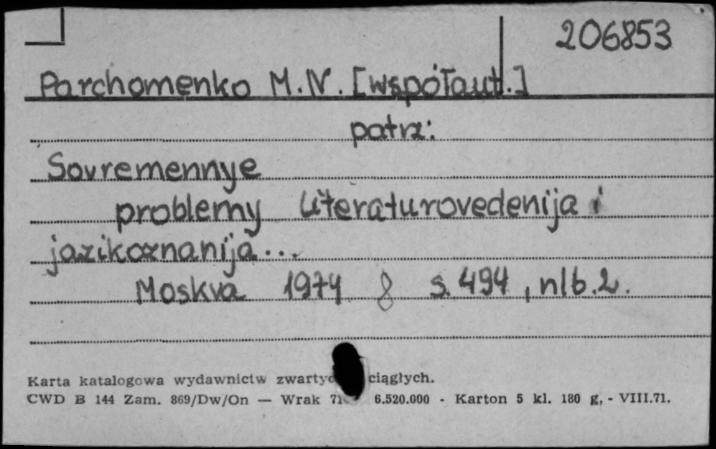 206853
Parchomenko M.N. [współaut.]
patrz:
Sovremennye
problemy literaturovedenija i
jazikoznanija...
Moskva 1974 8 s. 494, nlb. 2.
Karta katalogowa wydawnictw ciągłych.
CWD B 144 Zam. 869/Dw/On — Wrak 6.520.000 - Karton 5 kl. 180 g, - VIII.71.